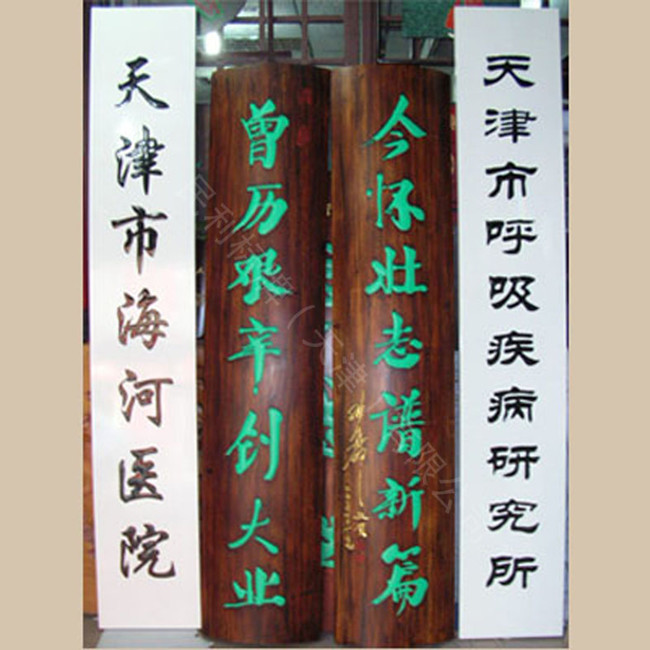 天津市海河医院
曾历艰辛创大业
今怀壮志谱新篇
天津市呼吸疾病研究所